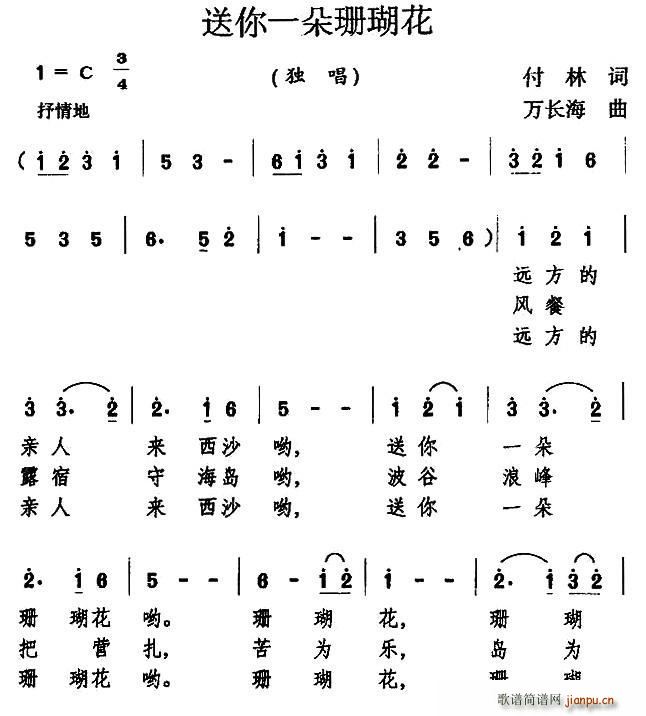 送你一朵珊瑚花
1 = C 3/4
(独唱)
付林 词
抒情地
万长海 曲
( 1 2 3 1 | 5 3 - | 6 1 3 1 | 2 2 - | 3 2 1 6 |
5 3 5 | 6. 5 2 | 1 - - | 3 5 6 ) | 1 2 1 |
远方的
风餐
远方的
3 3. 2 | 2. 1 6 | 5 - - | 1 2 1 | 3 3. 2 |
亲人 来西沙哟, 送你 一朵
露宿 守海岛哟, 波谷 浪峰
亲人 来西沙哟, 送你 一朵
2. 1 6 | 5 - - | 6 - 1 2 | 1 - - | 2. 1 3 2 |
珊瑚花哟。 珊瑚花, 珊瑚
把营扎, 苦为乐, 岛为
珊瑚花哟。 珊瑚花, 珊瑚
歌谱简谱网 jianpu.cn